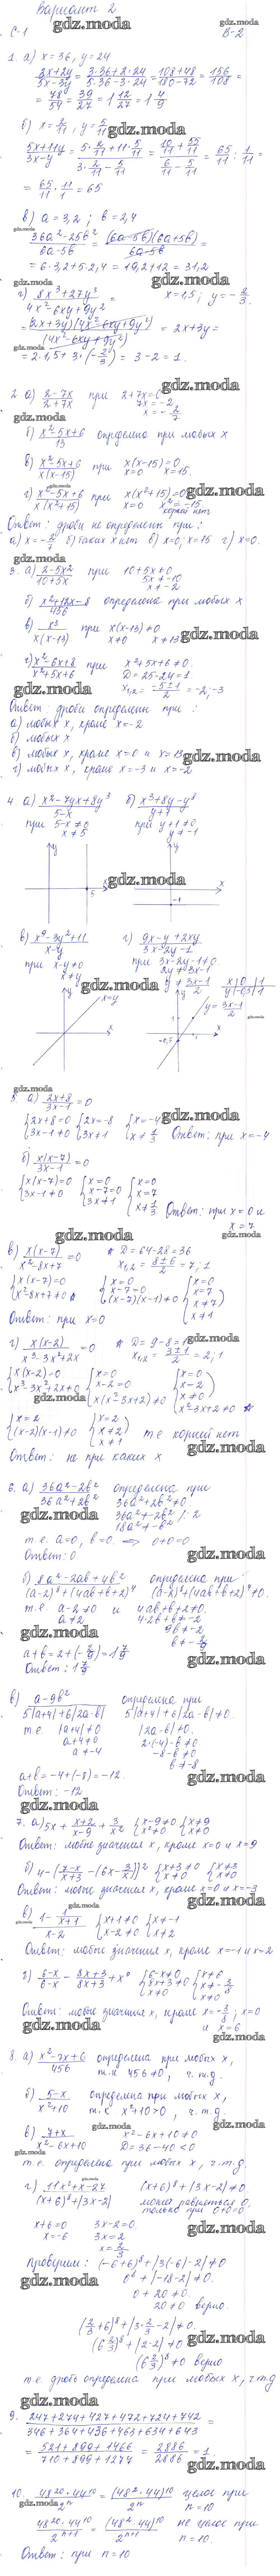 Вариант 2
С-1 В-2
1. а) x = 36, y = 24
(2x+2y)/(5x-3y) = (3·36+2·24)/(5·36-3·24) = (108+48)/(180-72) = 156/108 =
= 78/54 = 39/27 = 1 12/27 = 1 4/9
б) x = 2/11, y = 5/11
(5x+11y)/(3x-y) = (5·2/11+11·5/11)/(3·2/11-5/11) = (10/11+55/11)/(6/11-5/11) = 65/11 : 1/11 =
= 65/11 · 11/1 = 65
в) a = 3,2 ; b = 2,4
(36a²-25b²)/(6a-5b) = (6a-5b)(6a+5b)/(6a-5b) =
= 6·3,2+5·2,4 = 19,2+12 = 31,2
г) (8x³+27y³)/(4x²-6xy+9y²) = x=1,5 ; y = -2/3.
= (2x+3y)(4x²-6xy+9y²)/(4x²-6xy+9y²) = 2x+3y =
= 2·1,5+3·(-2/3) = 3-2 = 1.
2. а) (2-7x)/(2+7x) при 2+7x=0
7x = -2
x = -2/7
б) (x²-5x+6)/13 определена при любых x
в) (x²-5x+6)/(x(x-15)) при x(x-15)=0
x=0 x=15.
г) (x²-5x+6)/(x(x²+15)) при x(x²+15)=0
x=0 x²=-15
корней нет
Ответ: дроби не определены при :
а) x=-2/7 б) таких x нет в) x=0; x=15 г) x=0.
3. а) (2-5x²)/(10+5x) при 10+5x≠0
5x≠-10
x≠-2
б) (x²+12x-8)/456 определена при любых x
в) x³/(x(x-13)) при x(x-13)≠0
x≠0 x≠13
г) (x²-6x+8)/(x²+5x+6) при x²+5x+6≠0.
D=25-24=1
x₁,₂ = (-5±1)/2 = -2; -3
Ответ: дроби определены при :
а) любых x, кроме x=-2
б) любых x
в) любых x, кроме x=0 и x=13
г) любых x, кроме x=-3 и x=-2
4. а) (x²-7yx+8y³)/(5-x) б) (x³+8y-y⁸)/(y+1)
при 5-x≠0 при y+1≠0
x≠5 y≠-1
y x 5
y x -1
в) (x⁹-3y²+11)/(x-y) г) (9x-y+2xy)/(3x-2y-1)
при x-y≠0 при 3x-2y-1≠0.
x≠y 2y≠3x-1
y≠(3x-1)/2 x|0|1 y|-0,5|1
y x x=y
y x y=(3x-1)/2 1 1 -0,5
5. а) (2x+8)/(3x-1)=0
{2x+8=0 3x-1≠0 {2x=-8 3x≠1 {x=-4 x≠1/3 Ответ: при x=-4
б) x(x-7)/(3x-1)=0
{x(x-7)=0 3x-1≠0 {x=0 x-7=0 3x≠1 {x=0 x=7 x≠1/3 Ответ: при x=0 и x=7
в) x(x-7)/(x²-8x+7)=0 D=64-28=36
x₁,₂=(8±6)/2=7; 1
{x(x-7)=0 x²-8x+7≠0 {x=0 x-7=0 (x-7)(x-1)≠0 {x=0 x=7 x≠7 x≠1
Ответ: при x=0
г) x(x-2)/(x³-3x²+2x)=0 D=9-8=1
x₁,₂=(3±1)/2=2; 1
{x(x-2)=0 x³-3x²+2x≠0 {x=0 x-2=0 x(x²-3x+2)≠0 {x=0 x=2 x≠0 x²-3x+2≠0
{x=2 (x-2)(x-1)≠0 {x=2 x≠2 x≠1 т.е. корней нет
Ответ: ни при каких x
6. а) (36a²-2b²)/(36a²+2b²) определена при
36a²+2b²≠0
36a²≠-2b² /:2
18a²≠-b²
т.е. a=0, b=0. ⇒ 0+0=0
Ответ: 0
б) (8a²-2ab+4b²)/((a-2)⁸+(4ab+b+2)⁴) определена при
(a-2)⁸+(4ab+b+2)⁴≠0.
т.е a-2≠0 и 4ab+b+2≠0.
a≠2 4·2b+b≠-2
9b≠-2
b≠-2/9
a+b=2+(-2/9)=1 7/9
Ответ: 1 7/9
в) (a-9b²)/(5|a+4|+6|2a-b|) определена при
5|a+4|+6|2a-b|≠0.
т.е. |a+4|≠0 |2a-b|≠0.
a+4≠0 2·(-4)-b≠0
a≠-4 -8-b≠0
b≠-8
a+b=-4+(-8)=-12.
Ответ: -12
7. а) 5x+(x+2)/(x-9)+3/x² {x-9≠0 x²≠0 {x≠9 x≠0
Ответ: любые значения x, кроме x=0 и x=9
б) 4-((7-x)/(x+3)-(6x-3/x))² {x+3≠0 x≠0 {x≠-3 x≠0
Ответ: любые значения x, кроме x=0 и x=-3
в) (1-1/(x+1))/(x-2) {x+1≠0 x-2≠0 {x≠-1 x≠2
Ответ: любые значения x, кроме x=-1 и x=2
г) (6-x)/(6-x)-(8x+3)/(8x+3)+x⁰ {6-x≠0 8x+3≠0 x≠0 {x≠6 x≠-3/8 x≠0
Ответ: любые значения x, кроме x=-3/8; x=0
и x=6
8. а) (x²-7x+6)/456 определена при любых x,
т.к 456≠0, ч.т.д.
б) (5-x)/(x²+10) определена при любых x,
т.к x²+10>0, ч.т.д
в) (7+x)/(x²-6x+10) x²-6x+10≠0
D=36-40<0
т.е. определена при любых x, ч.т.д.
г) (11x³+x-27)/((x+6)⁸+|3x-2|) (x+6)⁸+|3x-2|≠0
может равняться 0
только при 0+0=0
x+6=0 3x-2=0.
x=-6 3x=2
x=2/3
Проверим: (-6+6)⁸+|3(-6)-2|≠0
0⁸+|-18-2|≠0.
0+20≠0.
20≠0 верно
(2/3+6)⁸+|3·2/3-2|≠0.
(6 2/3)⁸+|2-2|≠0
(6 2/3)⁸≠0 верно
т.е. дробь определена при любых x, ч.т.д
9. (247+274+427+472+724+742)/(346+364+436+463+634+643) =
= (521+899+1466)/(710+899+1277) = 2886/2886 = 1.
10. 48²⁰·44¹⁰/2ⁿ = (48²·44)¹⁰/2ⁿ целое при
n=10
48²⁰·44¹⁰/2ⁿ⁺¹ = (48²·44)¹⁰/2ⁿ⁺¹ не целое при
n=10.
Ответ: при n=10
gdz.moda